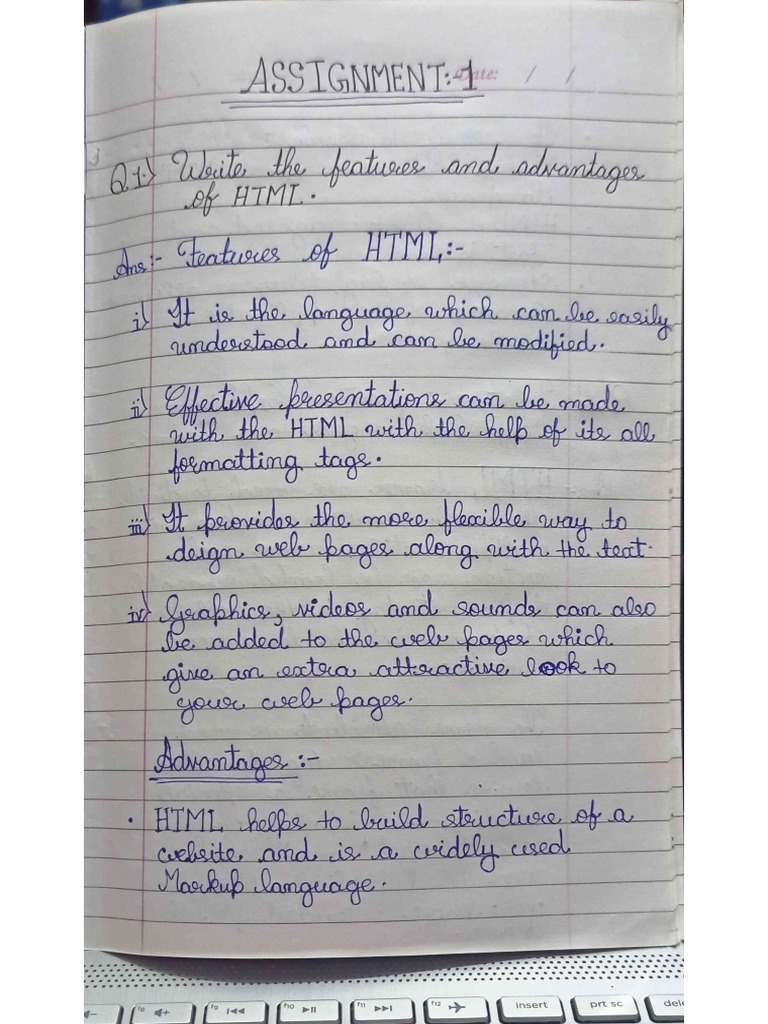 ASSIGNMENT:-1
Date: / /
Q.1.) Write the features and advantages
of HTML.
Ans:- Features of HTML:-
i) It is the language which can be easily
understood and can be modified.
ii) Effective presentations can be made
with the HTML with the help of its all
formatting tags.
iii) It provides the more flexible way to
deign web pages along with the text.
iv) Graphics, videos and sounds can also
be added to the web pages which
give an extra attractive look to
your web pages.
Advantages :-
• HTML helps to build structure of a
website and is a widely used
Markup language.
f8 +
f9
f10
f11
f12
insert
prt sc